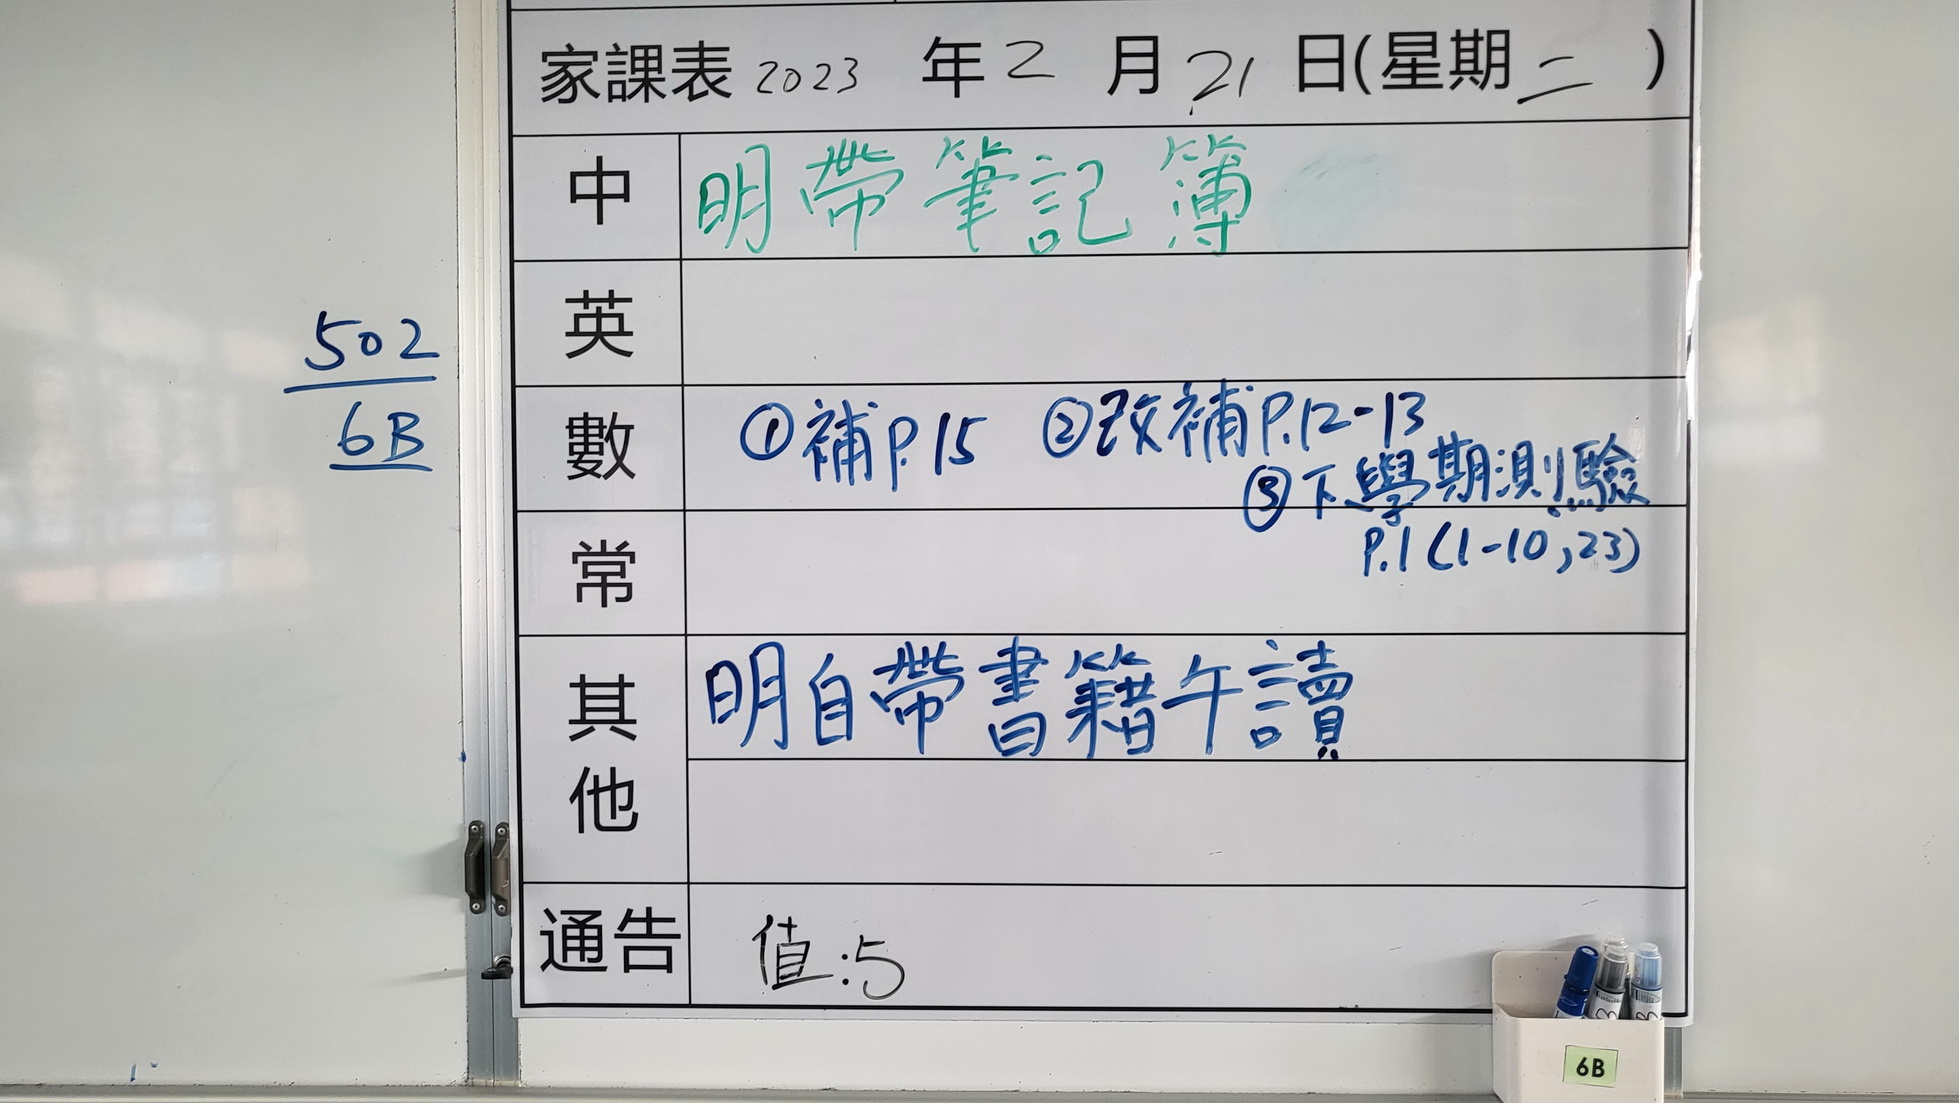 家課表 2023 年 2 月 21 日(星期二)
中 明帶筆記簿
英
502
6B
數 ①補P.15 ②改補P.12-13
③下學期測驗
P.1(1-10,23)
常
其他 明自帶書籍午讀
通告 值:5
6B